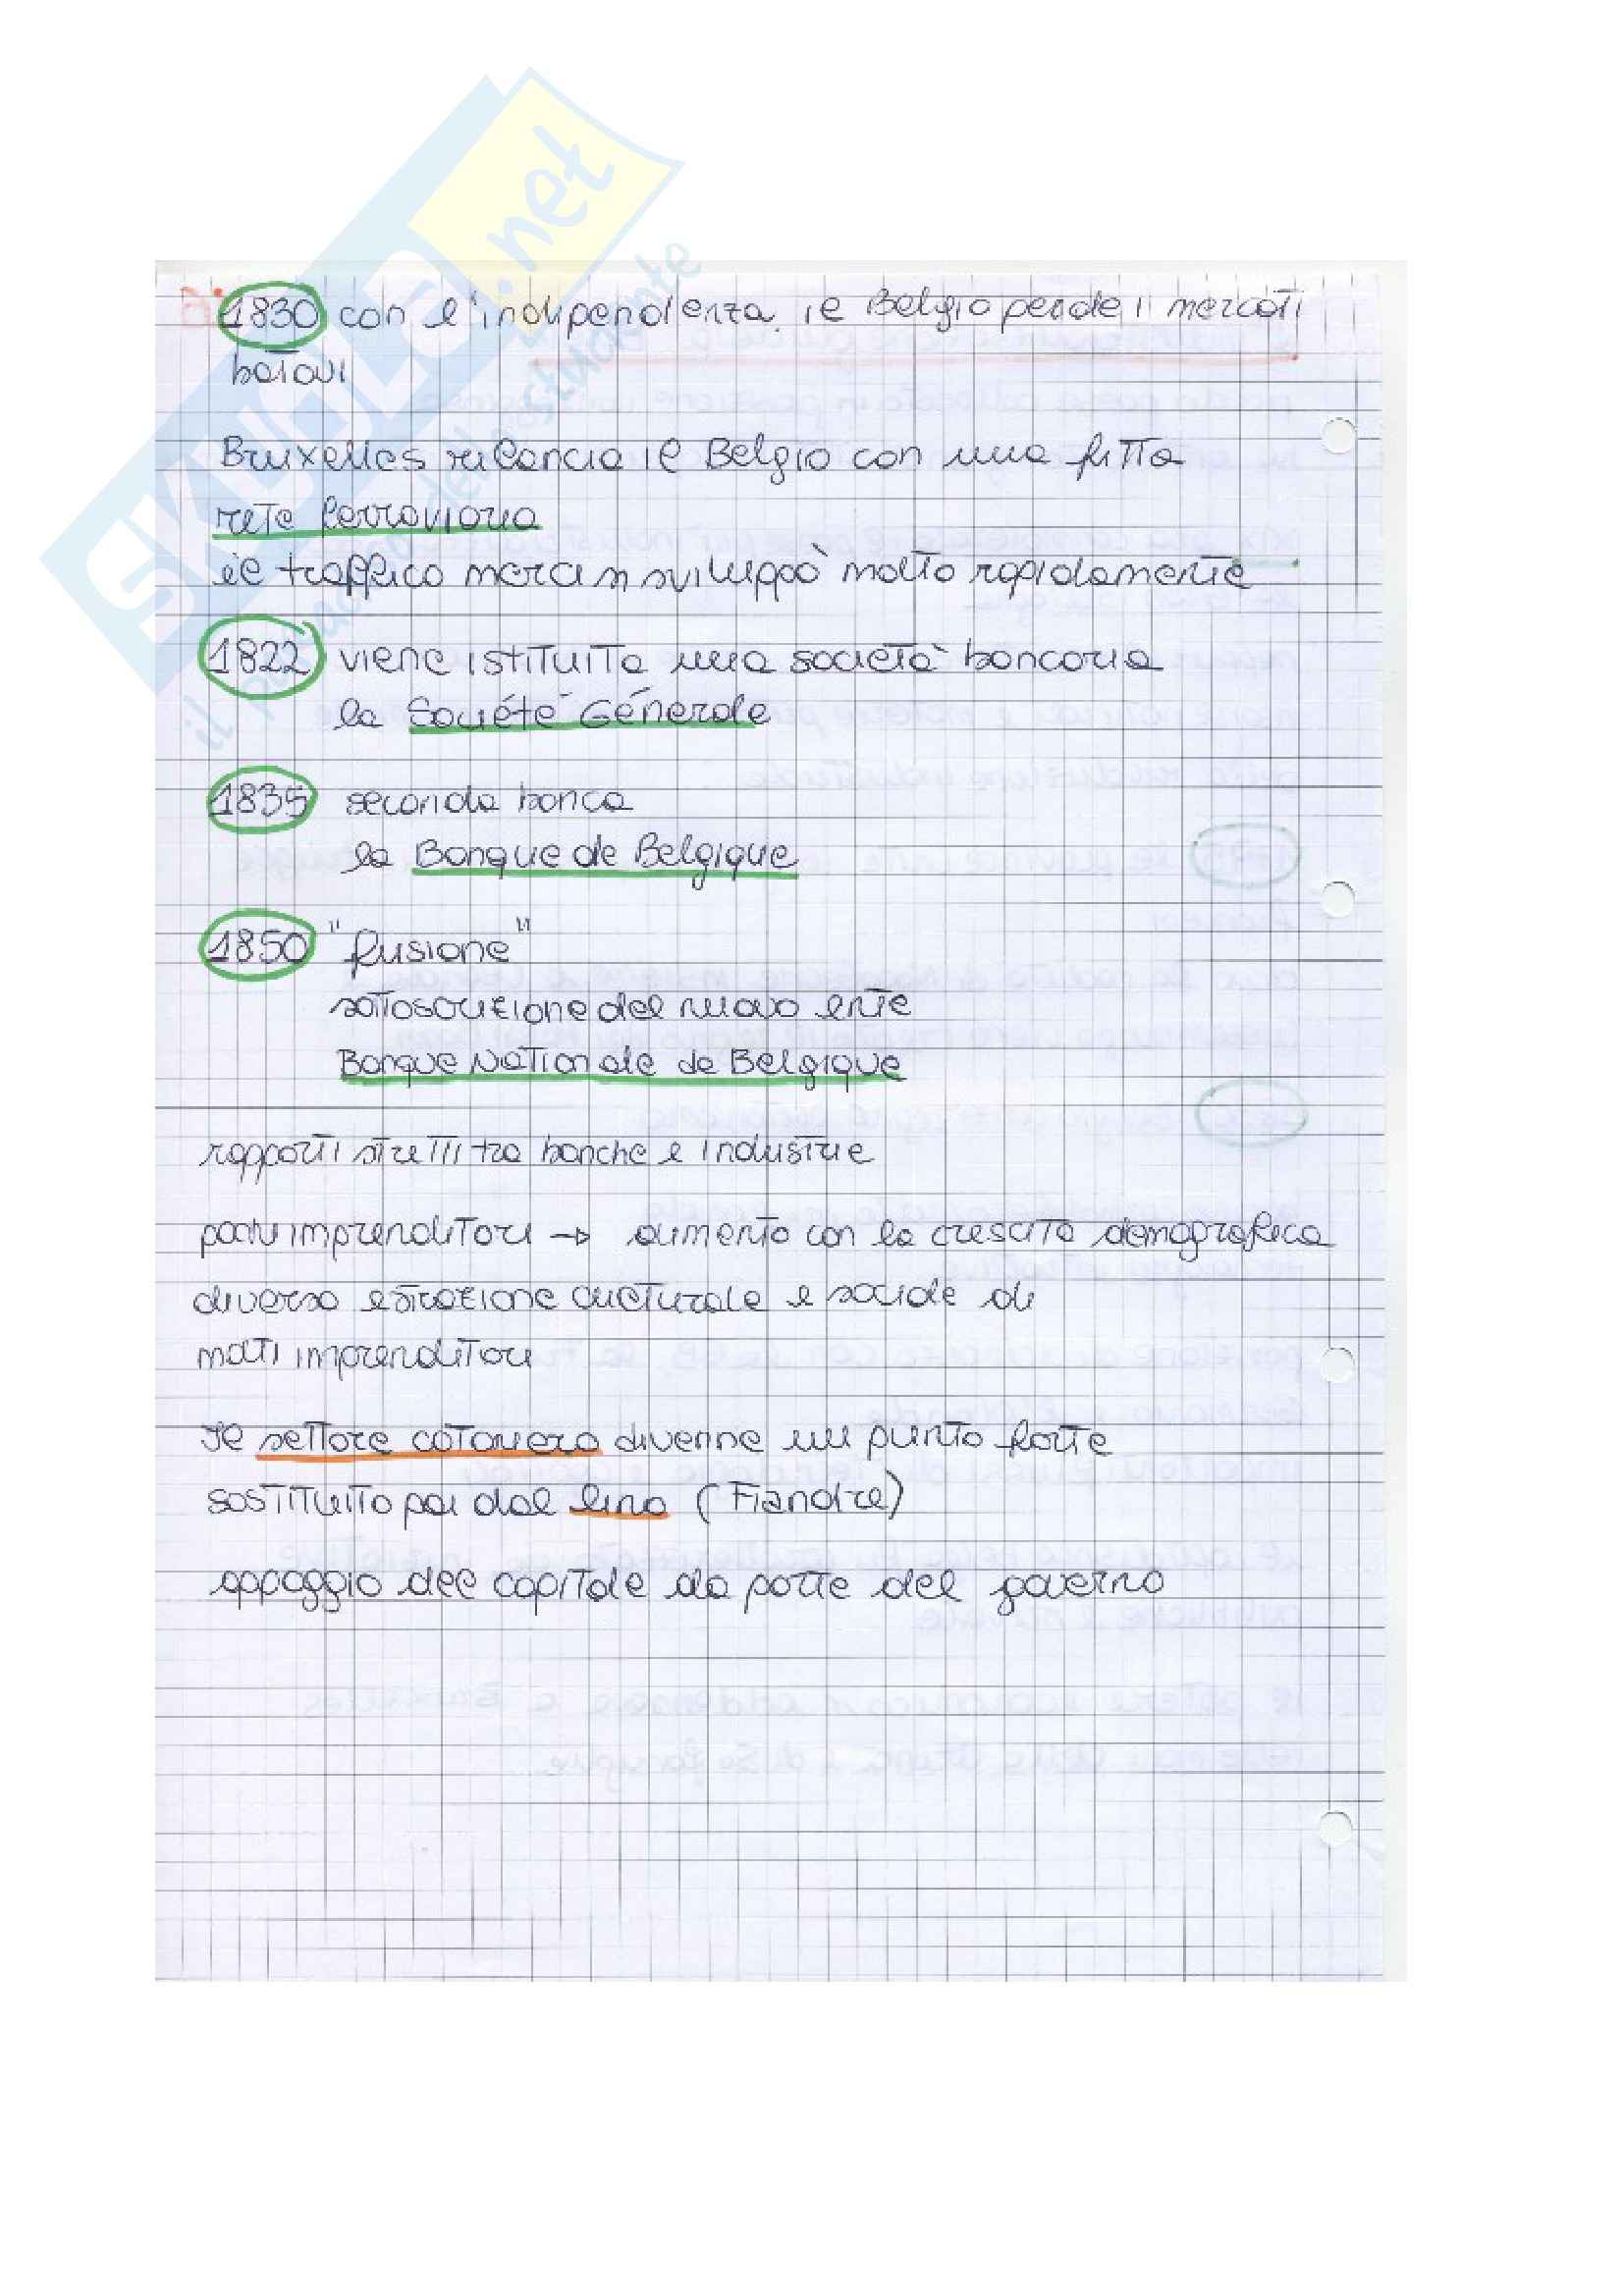 SKUOLA.net
il paradiso dello studente
1830 con l'indipendenza il Belgio perde i mercati
batavi
Bruxelles rilancia il Belgio con una fitta
rete ferroviaria
il traffico merci si sviluppò molto rapidamente
1822 viene istituita una società bancaria
la Société Générale
1835 seconda banca
la Banque de Belgique
1850 "fusione"
sottoscrizione del nuovo ente
Banque Nationale de Belgique
rapporti stretti tra banche e industrie
pochi imprenditori → aumento con la crescita demografica
diversa estrazione culturale e sociale di
molti imprenditori
Il settore cotoniero divenne un punto forte
sostituito poi dal lino (Fiandre)
appoggio del capitale da parte del governo